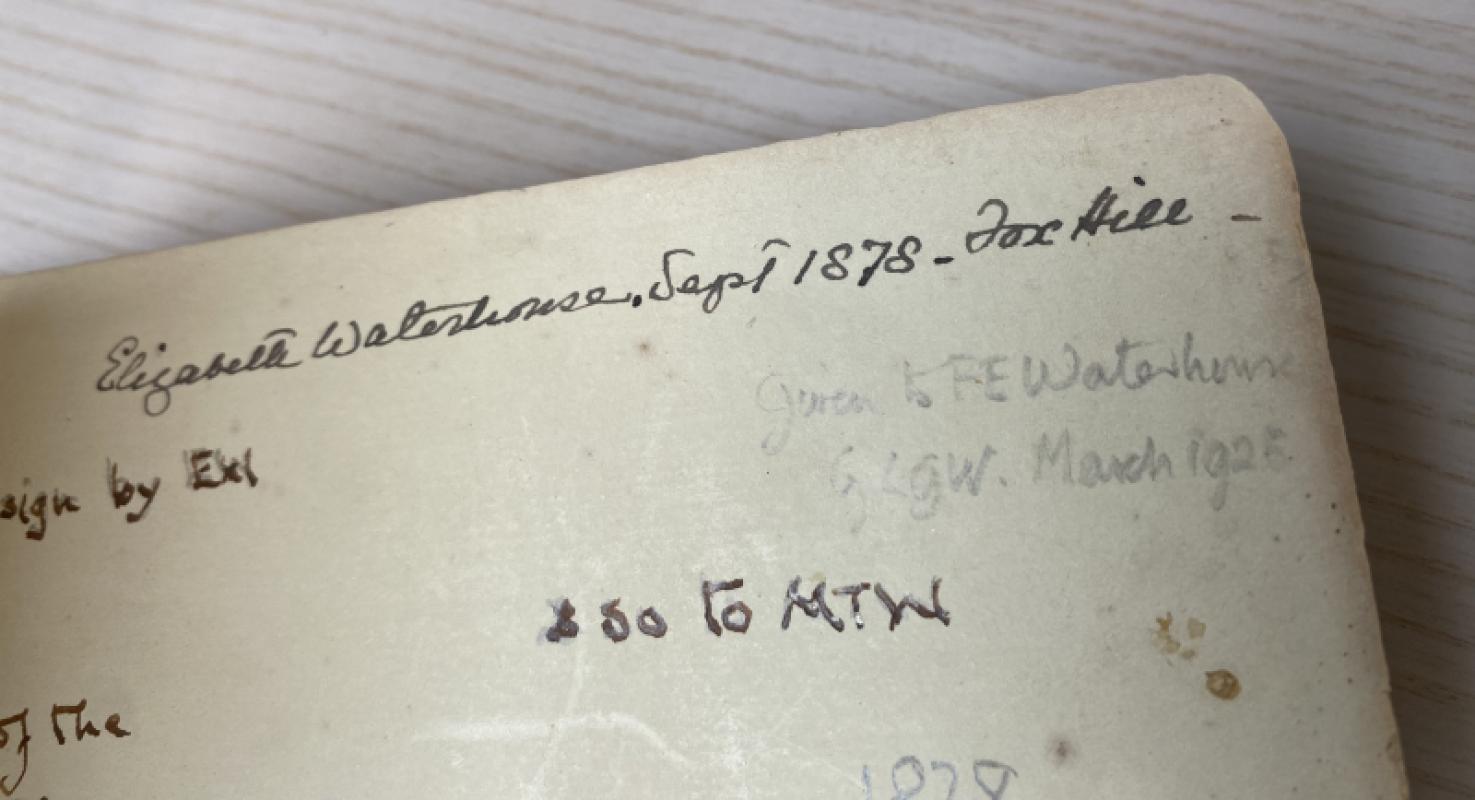 Elizabeth Waterhouse. Sept 1878 - Fox Hill -
Given to FE Waterhouse
by LGW. March 192
sign by EW
& so to MTW
of the
1878